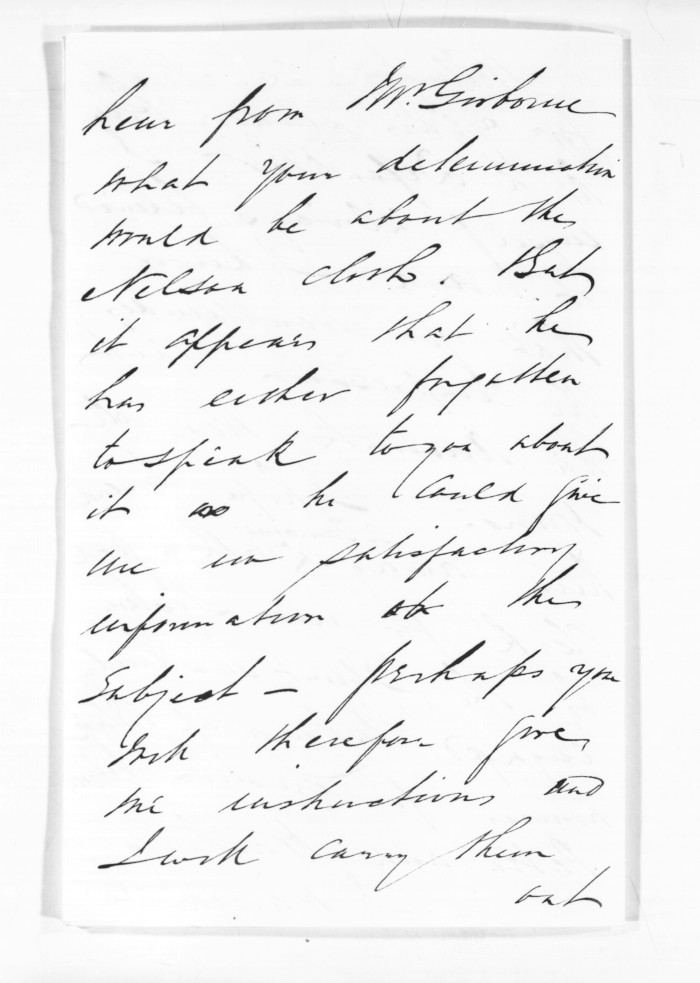 hear from Mr. Gisborne
what your determination
would be about the
Nelson clock. But
it appears that he
has either forgotten
to speak to you about
it as he could give
me no satisfactory
information on the
Subject — perhaps you
will therefore give
me instructions and
I will carry them
out